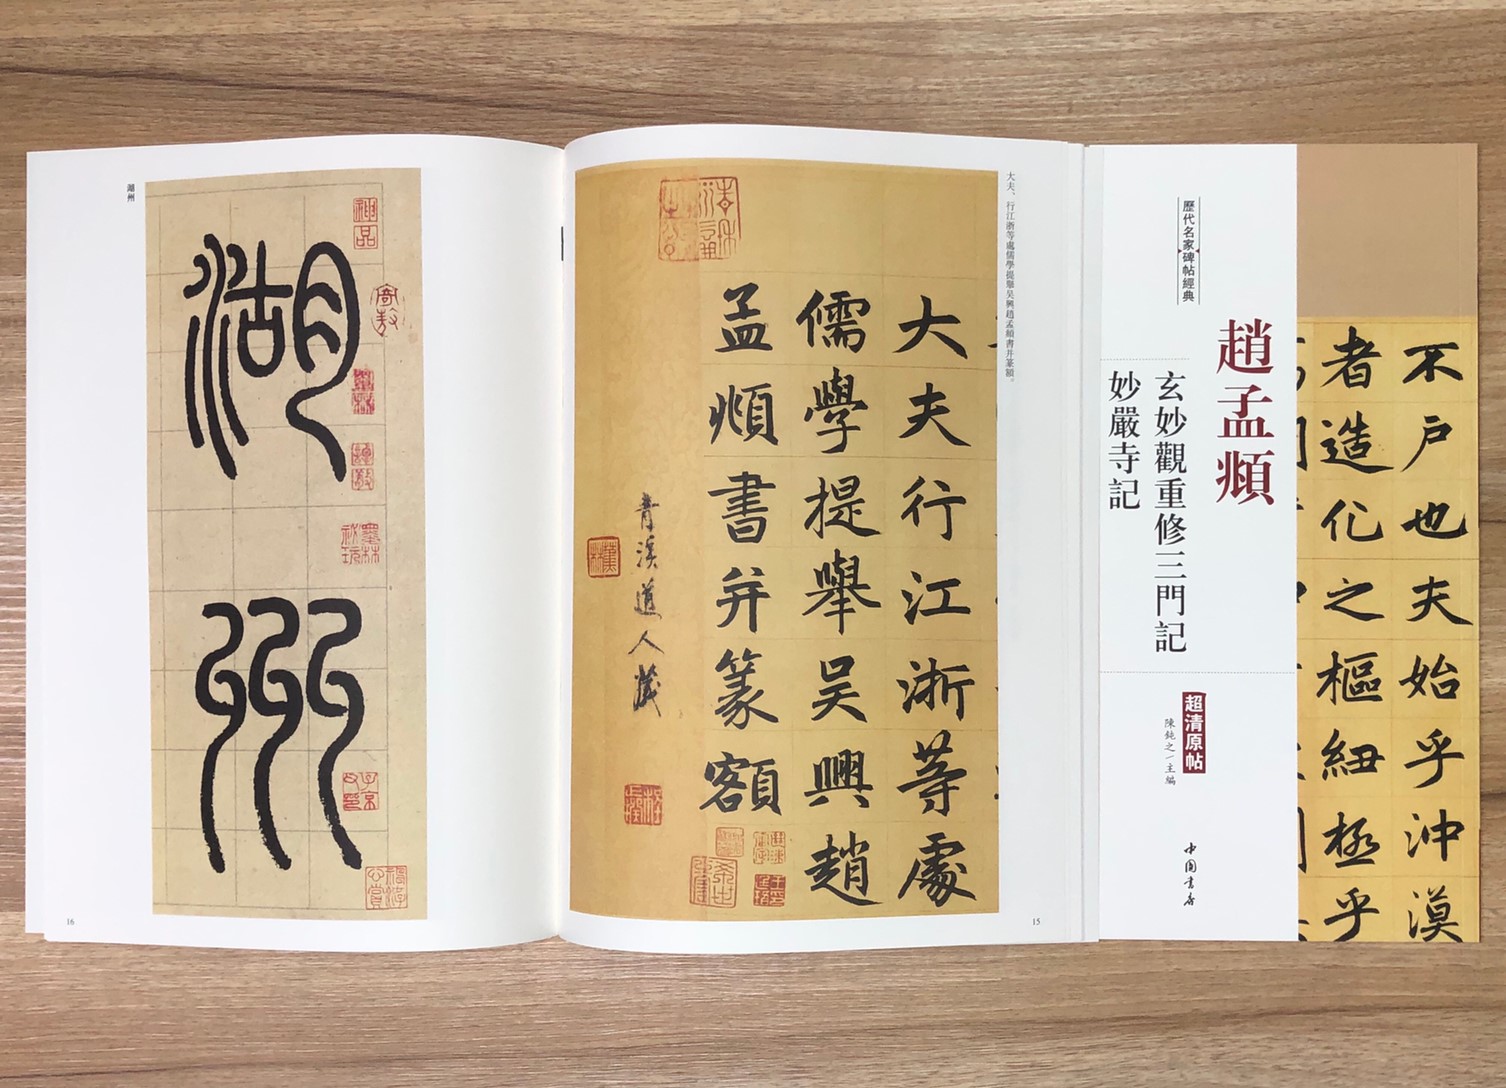 歷代名家碑帖經典
趙孟頫
玄妙觀重修三門記
妙嚴寺記
超清原帖
陳鈍之/主編
中國書店
不戶也夫始乎沖漠
者造化之樞紐極乎
大夫、行江浙等處儒學提舉吳興趙孟頫書并篆額。
大夫行江浙等處
儒學提舉吳興趙
孟頫書并篆額
青溪道人藏
15
湖州
湖州
神品
16